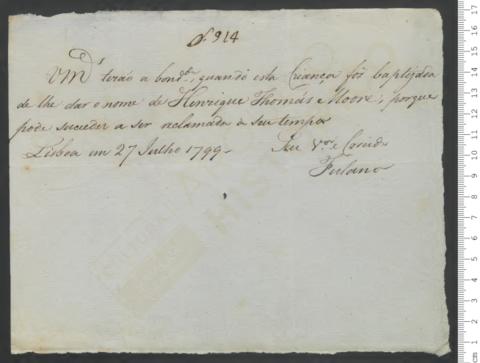 f. 914
VM.d terão a bond.e, quando esta Criança for baptizada
de lhe dar o nome de Henrique Thomás Moore, porque
pode suceder a ser reclamada a seu tempo
Lisboa em 27 Julho 1799 Seu V.or e Criado
Fulano